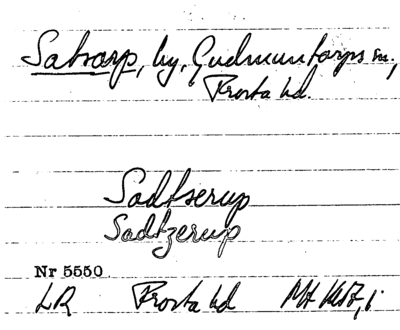 Satsarp, by, Gudmuntorps sn.,
Frosta hd.
Sadtserup
Sadtzerup
Nr 5550
LR Frosta hd